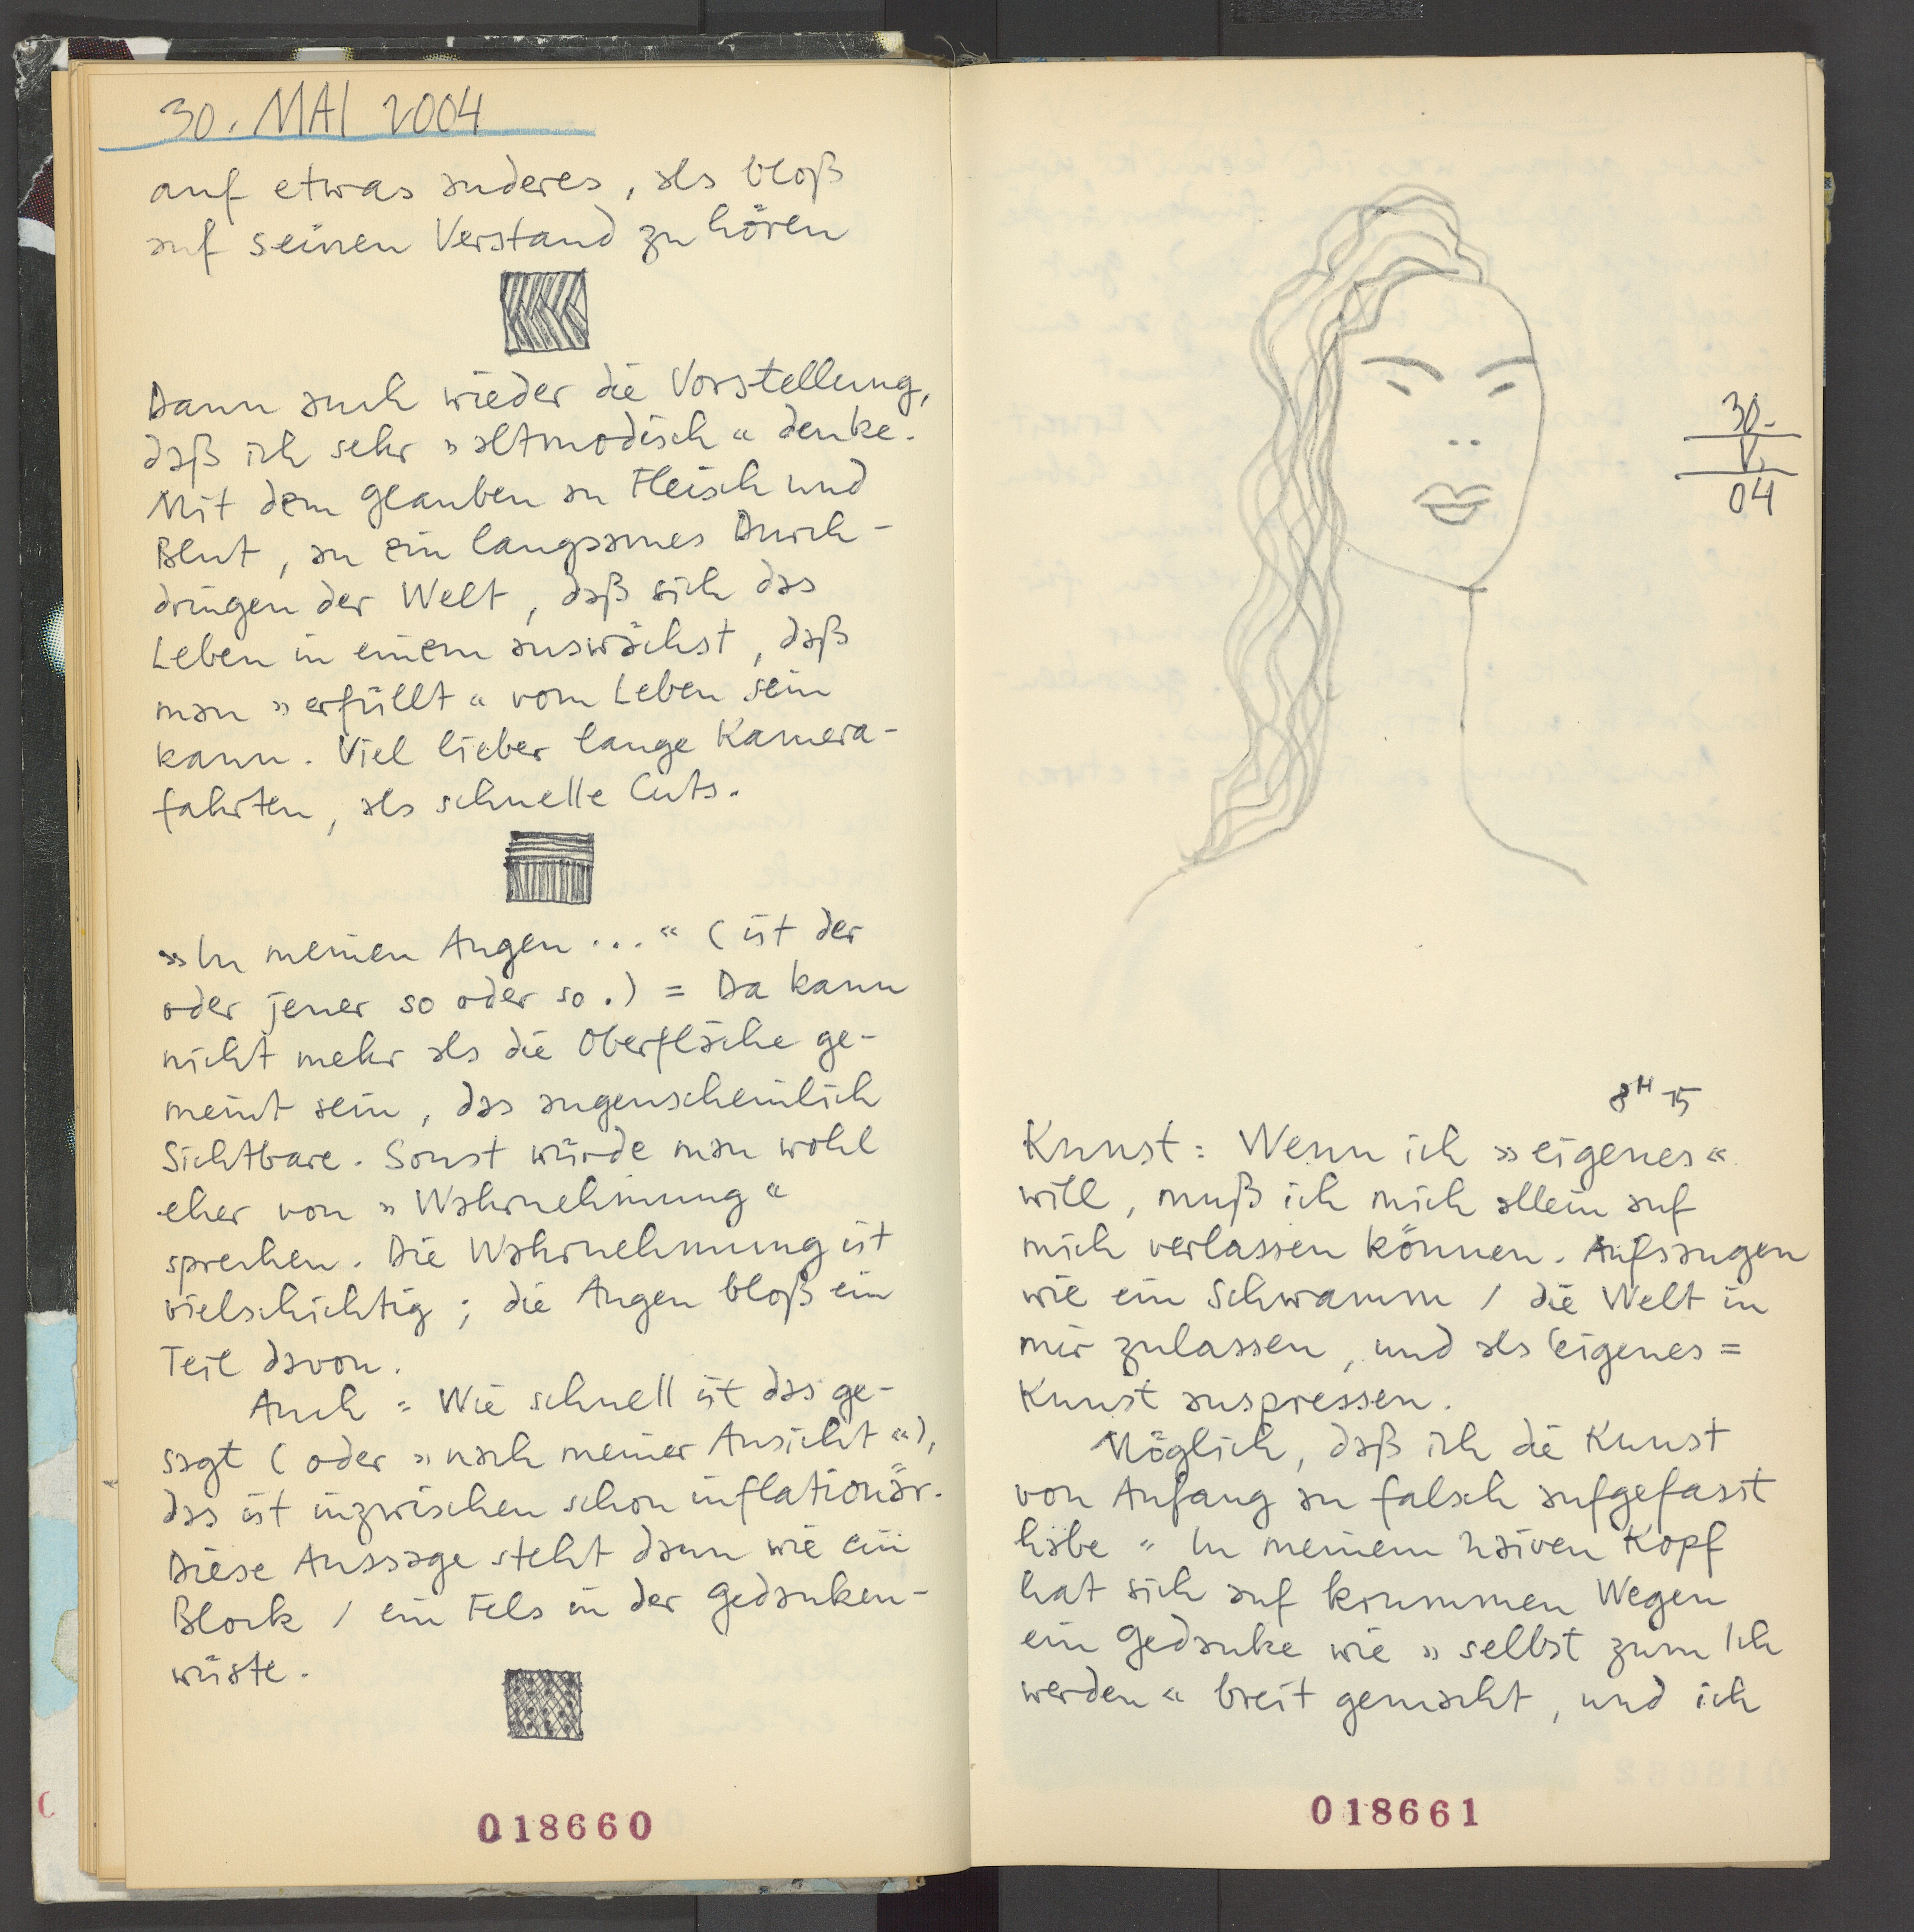 30. MAI 2004
auf etwas anderes, als bloß
auf seinen Verstand zu hören
Dann auch wieder die Vorstellung,
daß ich sehr »altmodisch« denke.
Mit dem Glauben an Fleisch und
Blut, an ein langsames Durch-
dringen der Welt, daß sich das
Leben in einem auswächst, daß
man »erfüllt« vom Leben sein
kann. Viel lieber lange Kamera-
fahrten, als schnelle Cuts.
»In meinen Augen...« (ist der
oder jener so oder so.) = Da kann
nicht mehr als die Oberfläche ge-
meint sein, das augenscheinlich
Sichtbare. Sonst würde man wohl
eher von »Wahrnehmung«
sprechen. Die Wahrnehmung ist
vielschichtig; die Augen bloß ein
Teil davon.
Auch = Wie schnell ist das ge-
sagt (oder »nach meiner Ansicht«),
das ist inzwischen schon inflationär.
Diese Aussage steht dann wie ein
Block / ein Fels in der Gedanken-
wüste.
018660
30.
V.
04
8H 15
Kunst: Wenn ich »eigenes«
will, muß ich mich allein auf
mich verlassen können. Aufsaugen
wie ein Schwamm / die Welt in
mir zulassen, und als eigenes =
Kunst auspressen.
Möglich, daß ich die Kunst
von Anfang an falsch aufgefasst
habe = In meinem naiven Kopf
hat sich auf krummen Wegen
ein Gedanke wie »selbst zum Ich
werden« breit gemacht, und ich
018661